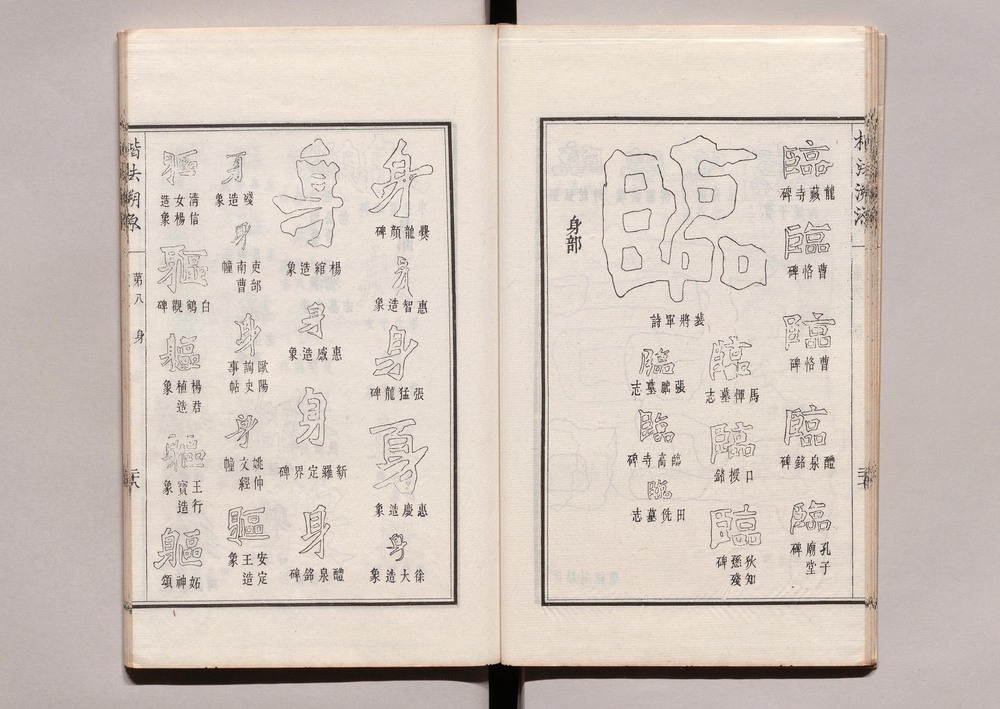 楷法溯源
臨
龍藏寺碑
臨
曹恪碑
臨
曹恪碑
臨
醴泉銘碑
臨
孔子廟堂碑
臨
裴將軍詩
臨
馬惲墓志
臨
口授銘
臨
狄知愻殘碑
臨
張墓志
臨
臨高寺碑
臨
田侁墓志
身部
身
爨龍顏碑
身
惠智造象
身
張猛龍碑
身
惠慶造象
身
徐大造象
身
楊綰造象
身
惠感造象
身
新羅定界碑
身
醴泉銘碑
身
殘造象
身
吏部南曹幢
身
歐陽詢史事帖
身
姚仲文經幢
軀
安定王造象
軀
清信女楊造象
軀
白鶴觀碑
軀
楊君植造象
軀
王行寶造象
軀
妬神頌
楷法溯源
第八
身